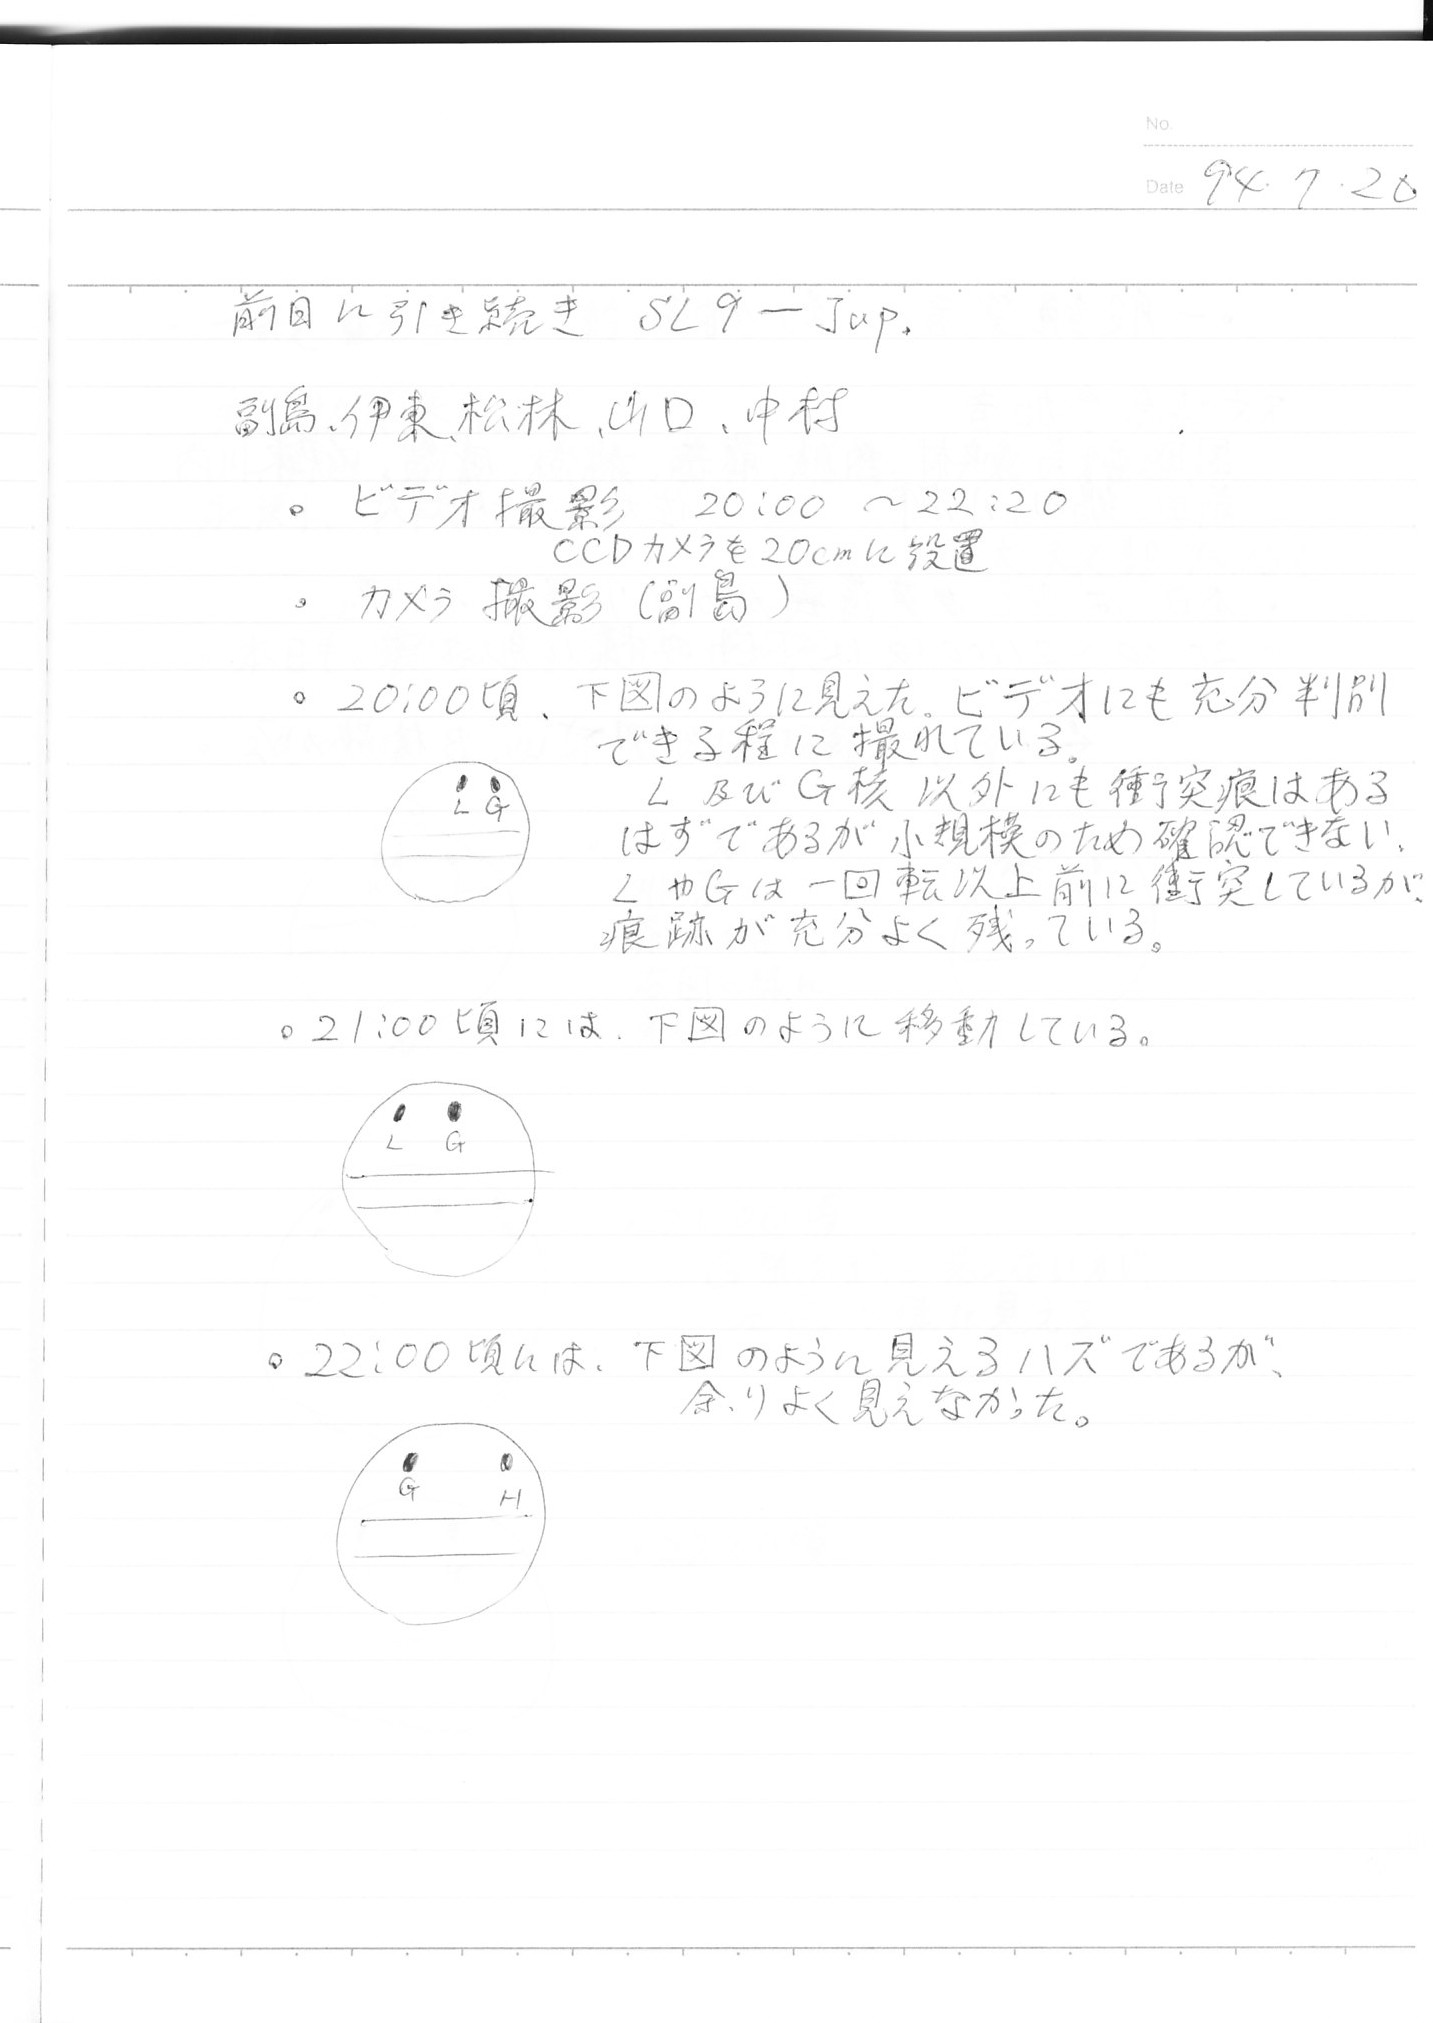 No.
Date 94.7.20
前日に引き続き SL9ーJup.
副島、伊東、松林、山口、中村
。ビデオ撮影 20:00 〜22:20
CCDカメラを20cmに設置
。カメラ撮影(副島)
。20:00頃、下図のように見えた。ビデオにも充分判別
できる程に撮れている。
L 及びG核以外にも衝突痕はある
はずであるが小規模のため確認できない、
LやGは一回転以上前に衝突しているが、
痕跡が充分よく残っている。
L G
。21:00頃には、下図のように移動している。
L G
。22:00頃には、下図のように見えるハズであるが、
余りよく見えなかった。
G H